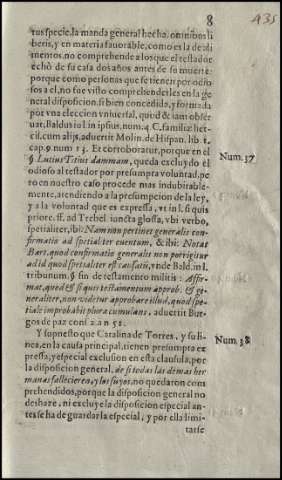 8
435
tus specie, la manda general hecha, omnibus li
beris, y en materia fauorable, como es la de ali
mentos, no comprehende a los que el testador
echò de su casa dos años antes de su muerte:
porque como personas que se tienen por odio
sos a el, no fue visto comprehenderles en la ge
neral disposicion, si bien concedida, y formada
por vna eleccion vniuersal, quid & iam obser
uat, Baldus in l. in ipsius, num. 4. C. familiæ her
cis. cum alijs, aduertit Molin. de Hispan. lib. 1.
cap. 9. num 15. Et corroboratur, porque en el
§. Lucius Titius damnam, queda excluydo el
odioso al testador por presumpta voluntad, pe
ro en nuestro caso procede mas indubitable-
mente, atendiendo a la presumpcion de la ley,
y a la voluntad que es expressa, vt in l. si quis
priore. ff. ad Trebel. iuncta glossa, vbi verbo,
spetialiter, ibi: Nam non pertinet generalis con-
firmatio ad spetialter euentum, & ibi: Notat
Bart. quod confirmatio generalis non porrigitur
ad id quod spetialiter est cassatũ, vnde Bald. in l.
tribunum. § fin. de testamento militis: Affir-
mat, quod & si quis testamentum approb. & ge-
neraliter, non videtur approbare illud, quod spe-
tiale improbabit plura cumulans, aduertit Bur-
gos de paz cons. 2 a n 51.
Y supuesto que Catalina de Torres, y su li-
nea, en la causa principal, tienen presumpta ex
pressa, y especial exclusion en esta clausula, por
la disposicion general, de si todas las demas her
manas fallecieren, y los suyos, no quedaron com
prehendidos, porque la disposicion general no
deshaze, ni excluye la disposicion especial, an-
tes se ha de guardar la especial, y por ella limi-
tarse
Num. 37
Num. 38